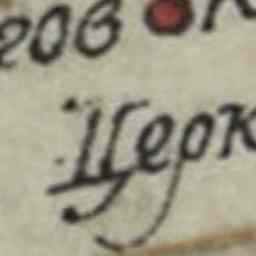 гов
Церк